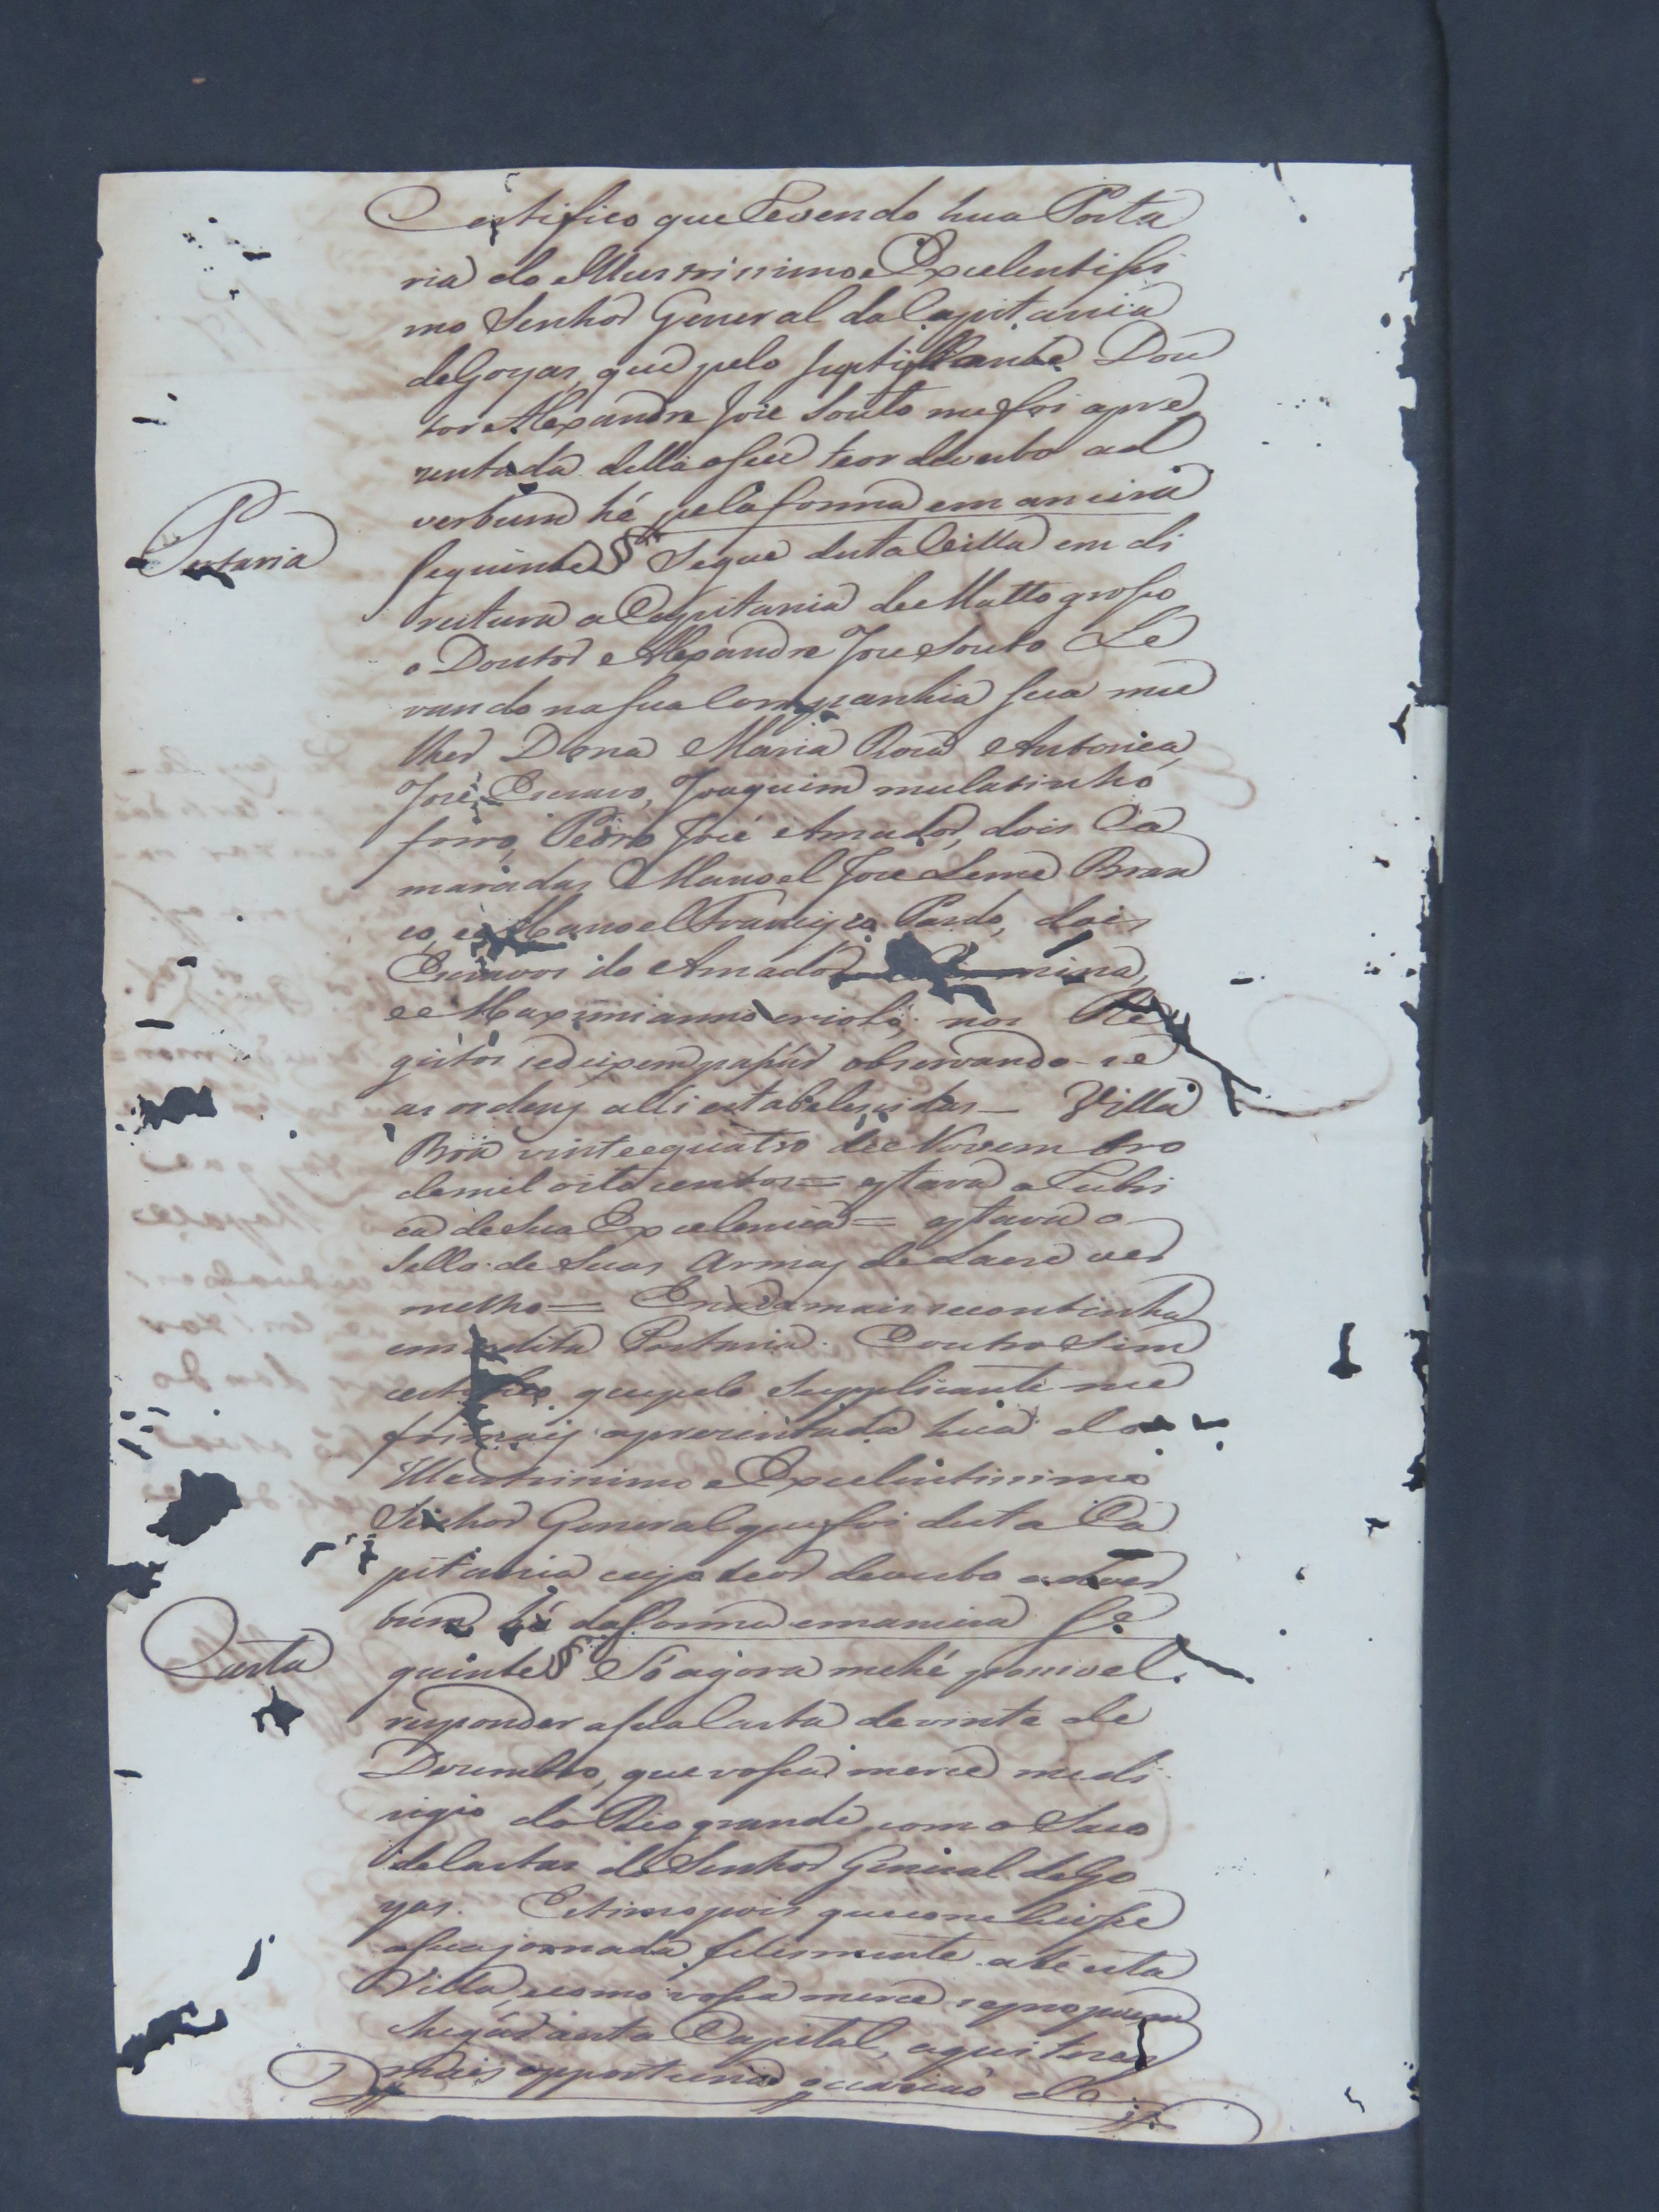 Certifico que Levendo hua Porta
ria do Illustrissimo e Excelentissi
mo Senhor General da Capitania
de Goyas, que pelo justificante Dou
tor Alexandre Joze Souto me foi apre
zentada della o seu teor de verbo ad
verbum hé pela forma e maneira
Portaria
seguinte § Segue desta Villa em di
reitura a Capitania de Matto grosso
o Doutor Alexandre Joze Souto Le
vando na sua Companhia sua mu
lher Dona Maria Roza Antonica,
José Escravo, Joaquim mulatinho
forro, Pedro José Amador, dois Ca
maradas Manoel Joze Leme Bran
co, e Manoel Francisco Pardo, dois
Escravos do Amador mina,
e Maximianno criolo; nos Re
gistos se deixem passar observando-se
as ordens alli estabelescidas — Villa
Boa vinte e quatro de Novembro
de mil oito centos = estava a Rubri
ca de Sua Excelencia = estava o
Sello de Suas Armas de Lacre ver
melho = E nada mais se continha
em a dita Portaria. E outro Sim
certifico que pelo Supplicante me
foi mais aprezentada hua do
Illustrissimo e Excelentissimo
Senhor General que foi desta Ca
pitania cujo teor de verbo ad ver
bum hé da forma e maneira Se
Carta
guinte § Só agora me hé possivel
responder a sua Carta de vinte de
Dezembro, que vossa merce me di
rigio do Rio grande com o Saco
de Cartas do Senhor General de Go
yas. Estimo pois que concluisse
a sua jornada felismente até esta
Villa, e como vossa merce se propoem
chegar a esta Capital, aqui terey
mais opportuna ocaziaõ de